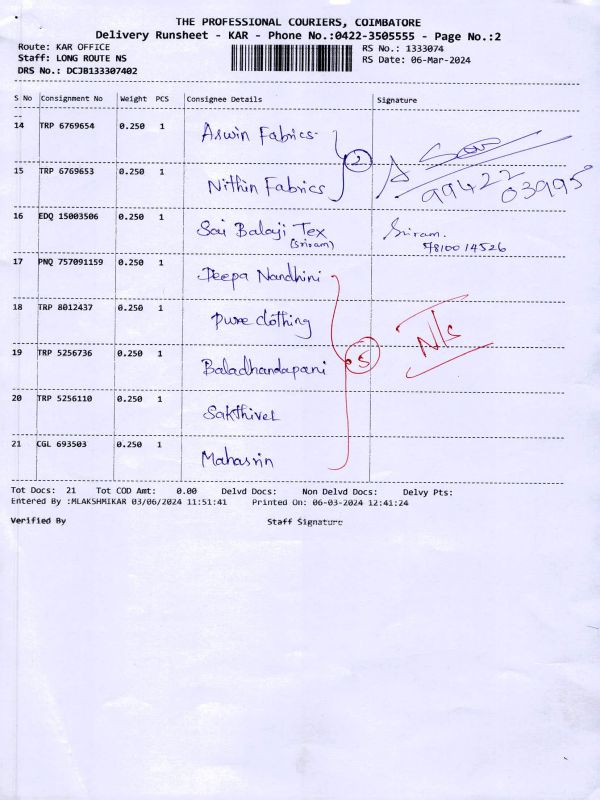 THE PROFESSIONAL COURIERS, COIMBATORE
Delivery Runsheet - KAR - Phone No.:0422-3505555 - Page No.:2
Route: KAR OFFICE RS No.: 1333074
Staff: LONG ROUTE NS RS Date: 06-Mar-2024
DRS No.: DCJB133307402
S No Consignment No Weight PCS Consignee Details Signature
14 TRP 6769654 0.250 1 Aswin Fabrics
2
15 TRP 6769653 0.250 1 Nithin Fabrics 99422 03995
16 EDQ 15003506 0.250 1 Sai Balaji Tex Sriram.
(Sriram) 7810014526
17 PNQ 757091159 0.250 1 Deepa Nandhini
18 TRP 8012437 0.250 1 Pure clothing
N/S
19 TRP 5256736 0.250 1 Baladhandapani 5
20 TRP 5256110 0.250 1 Sakthivel
21 CGL 693503 0.250 1 Mahasrin
Tot Docs: 21 Tot COD Amt: 0.00 Delvd Docs: Non Delvd Docs: Delvy Pts:
Entered By :MLAKSHMIKAR 03/06/2024 11:51:41 Printed On: 06-03-2024 12:41:24
Verified By Staff Signature